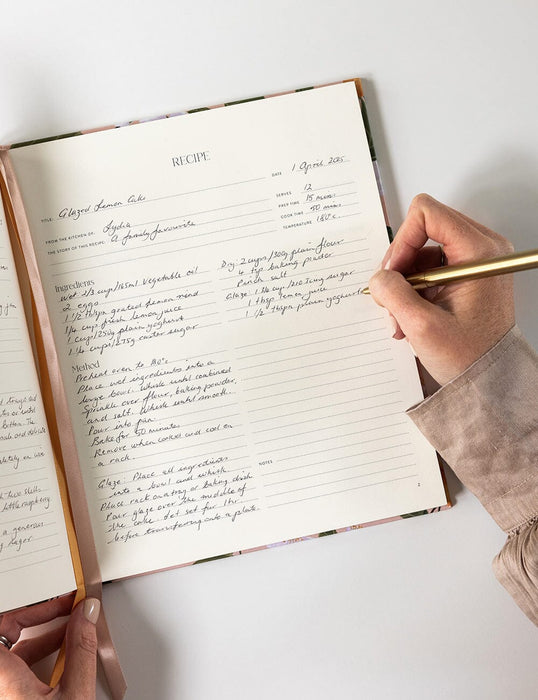 RECIPE
TITLE: Glazed Lemon Cake
DATE 1 April 2025
FROM THE KITCHEN OF: Lydia
THE STORY OF THIS RECIPE: A family favourite
SERVES 12
PREP TIME 15 mins
COOK TIME 50 mins
TEMPERATURE 180°c
Ingredients
Wet: 2/3 cup/165ml Vegetable oil
2 eggs
1 1/2 tbspn grated lemon rind
1/4 cup fresh lemon juice
1 cup/250g plain yoghurt
1 1/4 cups/275g caster sugar
Dry: 2 cups/300g plain flour
4 tsp baking powder
Pinch salt
Glaze: icing sugar
1 tbsp lemon juice
1 1/2 tbspn plain yoghurt
Method
Preheat oven to
Place wet ingredients into a
large bowl. Whisk until combined
Sprinkle over flour, baking powder,
and salt. Whisk until smooth.
Pour into pan.
Bake for 50 minutes.
Remove when cooked and cool on
a rack.
Glaze: Place all ingredients
into a bowl and whisk.
Place rack on a tray or baking dish
Pour glaze over the middle of
the cake. Let set for 1hr.
before transferring onto a plate.
NOTES